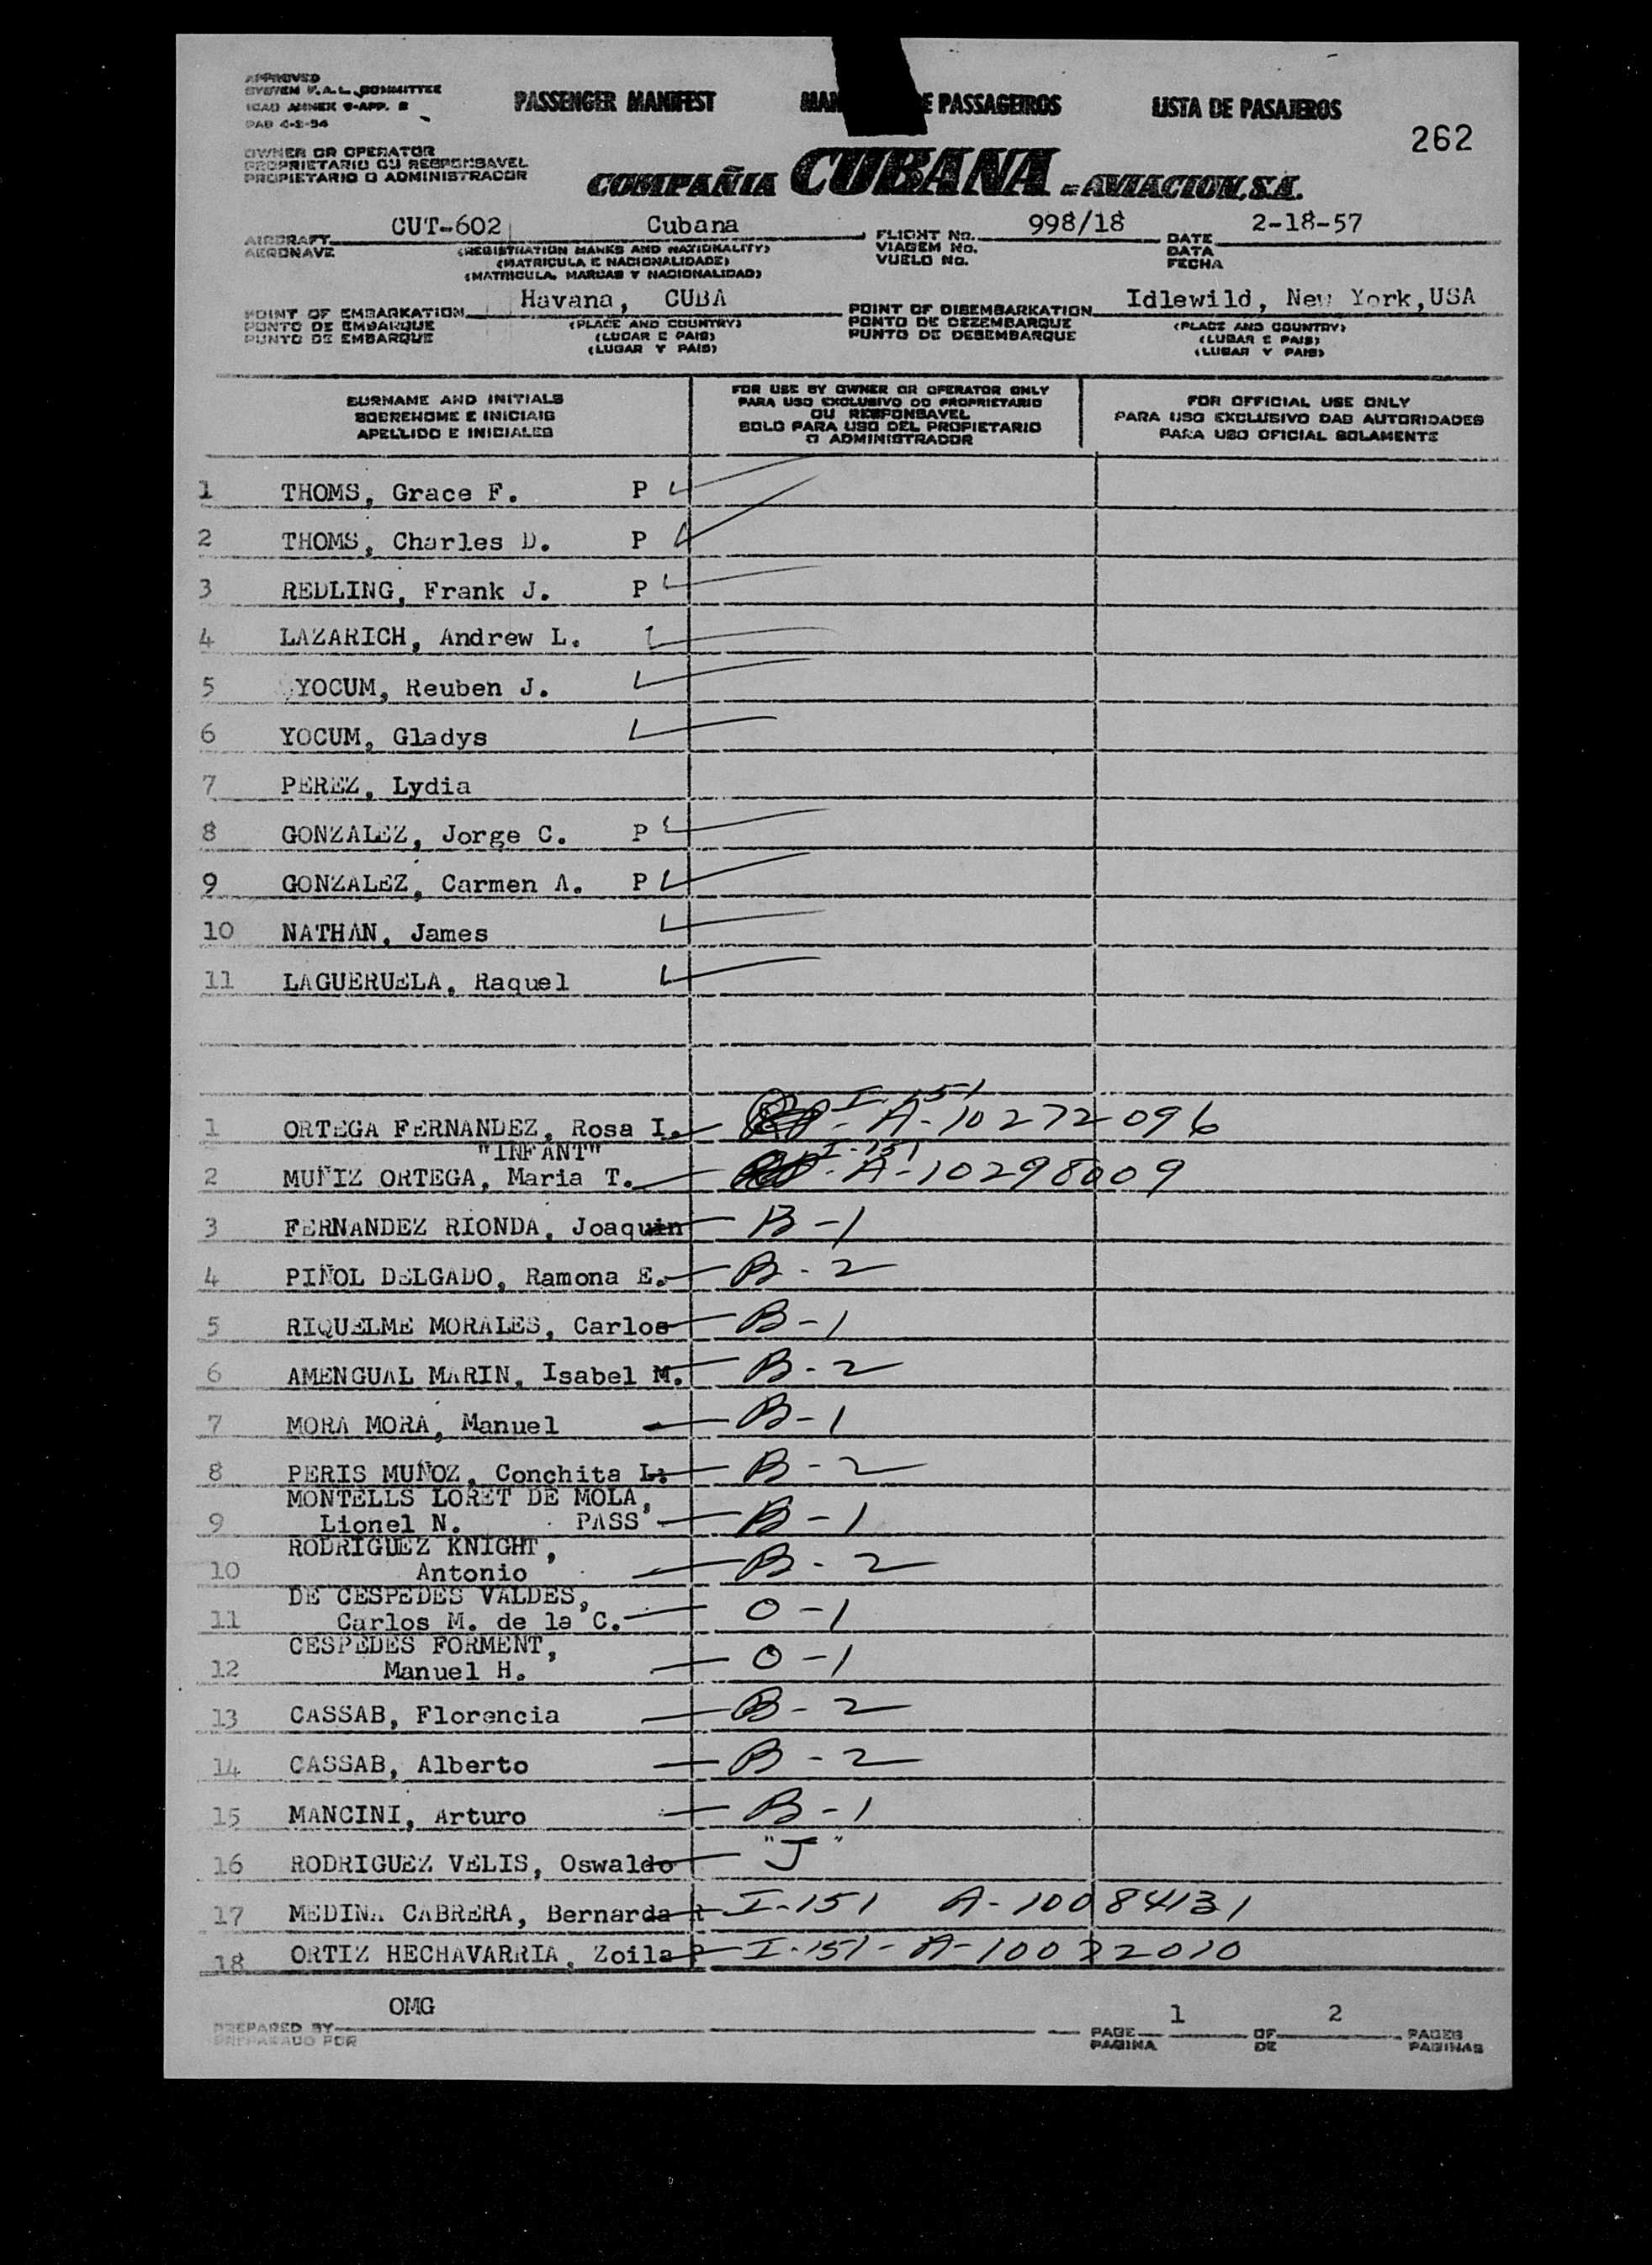 APPROVED
SYSTEM F.A.L. COMMITTEE
ICAO ANNEX 9-APP. 2
PAB 4-2-54
PASSENGER MANIFEST MAN E PASSAGEIROS LISTA DE PASAJEROS
262
OWNER OR OPERATOR
PROPRIETARIO OU RESPONSAVEL
PROPIETARIO O ADMINISTRADOR
COMPAÑIA CUBANA DE AVIACION, S.A.
AIRCRAFT CUT-602 Cubana FLIGHT No. 998/18 DATE 2-18-57
AERONAVE (REGISTRATION MARKS AND NATIONALITY) VIAGEM No. DATA
(MATRICULA E NACIONALIDADE) VUELO No. FECHA
(MATRICULA, MARCAS Y NACIONALIDAD)
POINT OF EMBARKATION Havana, CUBA POINT OF DISEMBARKATION Idlewild, New York, USA
PONTO DE EMBARQUE (PLACE AND COUNTRY) PONTO DE DEZEMBARQUE (PLACE AND COUNTRY)
PUNTO DE EMBARQUE (LUGAR E PAIS) PUNTO DE DESEMBARQUE (LUGAR E PAIS)
(LUGAR Y PAIS) (LUGAR Y PAIS)
SURNAME AND INITIALS
SOBRENOME E INICIAIS
APELLIDO E INICIALES
FOR USE BY OWNER OR OPERATOR ONLY
PARA USO EXCLUSIVO DO PROPRIETARIO
OU RESPONSAVEL
SOLO PARA USO DEL PROPIETARIO
O ADMINISTRADOR
FOR OFFICIAL USE ONLY
PARA USO EXCLUSIVO DAS AUTORIDADES
PARA USO OFICIAL SOLAMENTE
1 THOMS, Grace F. P
2 THOMS, Charles D. P
3 REDLING, Frank J. P
4 LAZARICH, Andrew L.
5 YOCUM, Reuben J.
6 YOCUM, Gladys
7 PEREZ, Lydia
8 GONZALEZ, Jorge C. P
9 GONZALEZ, Carmen A. P
10 NATHAN, James
11 LAGUERUELA, Raquel
1 ORTEGA FERNANDEZ, Rosa I. I-151 A-10272096
"INFANT"
2 MUÑIZ ORTEGA, Maria T. I-151 A-10298009
3 FERNANDEZ RIONDA, Joaquin B-1
4 PIÑOL DELGADO, Ramona E. B-2
5 RIQUELME MORALES, Carlos B-1
6 AMENGUAL MARIN, Isabel M. B-2
7 MORA MORA, Manuel B-1
8 PERIS MUÑOZ, Conchita L. B-2
MONTELLS LORET DE MOLA,
9 Lionel N. PASS B-1
RODRIGUEZ KNIGHT,
10 Antonio B-2
DE CESPEDES VALDES,
11 Carlos M. de la C. O-1
CESPEDES FORMENT,
12 Manuel H. O-1
13 CASSAB, Florencia B-2
14 CASSAB, Alberto B-2
15 MANCINI, Arturo B-1
16 RODRIGUEZ VELIS, Oswaldo "J"
17 MEDINA CABRERA, Bernarda R I-151 A-10084131
18 ORTIZ HECHAVARRIA, Zoila I-151-A-10022010
OMG
PREPARED BY PAGE 1 OF 2 PAGES
PREPARADO POR PAGINA DE PAGINAS